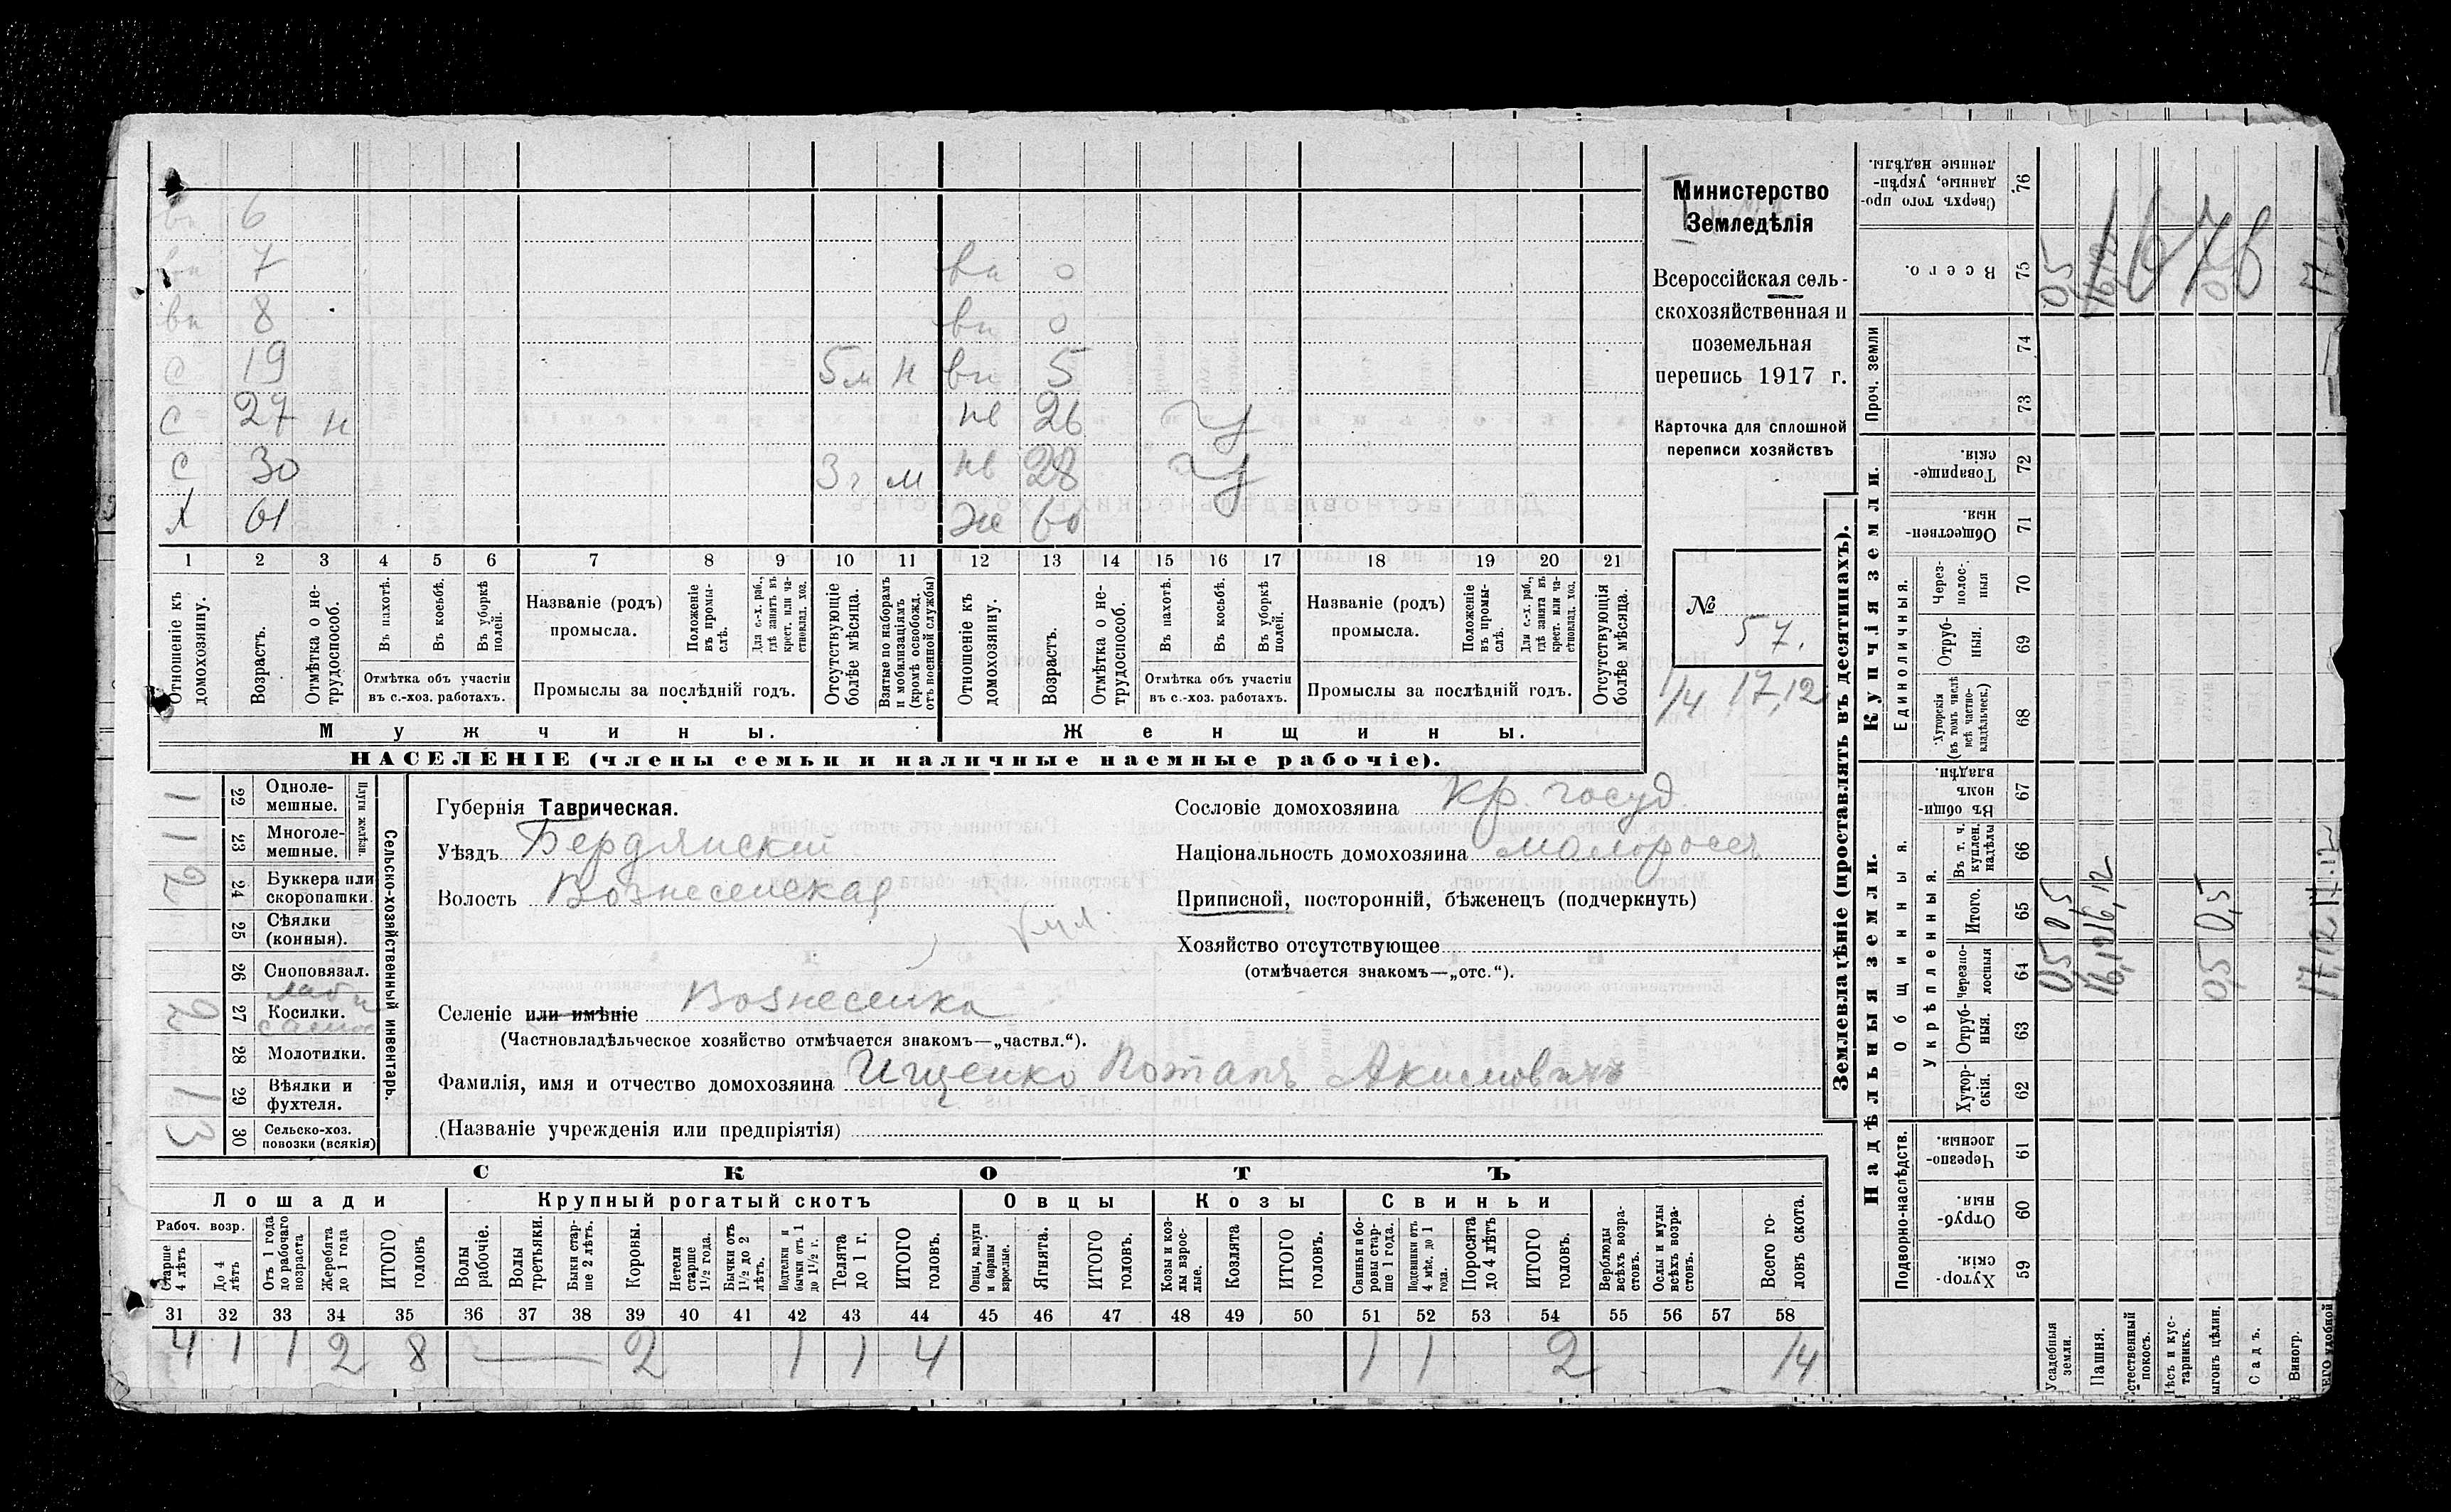 вн 6
вн 7 вн 0
вн 8 вн 0
С 19 5 м н вн 5
С 27 н нв 26 у
С 30 3 г м нв 28 у
Х 61 Же 60
1 2 3 4 5 6 7 8 9 10 11 12 13 14 15 16 17 18 19 20 21
Отношеніе къ домохозяину.
Возрастъ.
Отмѣтка о нетрудоспособ.
Въ пахотѣ.
Въ косьбѣ.
Въ уборкѣ полей.
Отмѣтка объ участіи въ с.-хоз. работахъ.
Названіе (родъ) промысла.
Положеніе въ промыслѣ.
Для с.-х. раб., гдѣ занятъ въ крест. или частновлад. хоз.
Промыслы за послѣдній годъ.
Отсутствующіе болѣе мѣсяца.
Взятые по наборамъ и мобилизаціямъ (кромѣ освобожд. отъ военной службы)
Отношеніе къ домохозяину.
Возрастъ.
Отмѣтка о нетрудоспособ.
Въ пахотѣ.
Въ косьбѣ.
Въ уборкѣ полей.
Отмѣтка объ участіи въ с.-хоз. работахъ.
Названіе (родъ) промысла.
Положеніе въ промыслѣ.
Для с.-х. раб., гдѣ занята въ крест. или частновлад. хоз.
Промыслы за послѣдній годъ.
Отсутствующія болѣе мѣсяца.
Мужчины. Женщины.
НАСЕЛЕНІЕ (члены семьи и наличные наемные рабочіе).
Министерство
Земледѣлія
Всероссійская сель-
скохозяйственная и
поземельная
перепись 1917 г.
Карточка для сплошной
переписи хозяйствъ
№
57.
1/4 17,12
Сельско-хозяйственный инвентарь.
Плуги желѣзн.
1 22 Одноле-
мешные.
1 23 Многоле-
мешные.
2 24 Буккера или
скоропашки.
25 Сѣялки
(конныя).
26 Сноповязал.
2 27 Косилки.
28 Молотилки.
1 29 Вѣялки и
фухтеля.
3 30 Сельско-хоз.
повозки (всякія)
Губернія Таврическая.
Уѣздъ Бердянскій
Волость Вознесенская
Селеніе или имѣніе Вознесенка
(Частновладѣльческое хозяйство отмѣчается знакомъ—„частвл.“).
Фамилія, имя и отчество домохозяина Ищенко Потапъ Акимовичъ
(Названіе учрежденія или предпріятія)
Сословіе домохозяина Кр. госуд.
Національность домохозяина малороссъ
Приписной, посторонній, бѣженецъ (подчеркнуть)
Хозяйство отсутствующее
(отмѣчается знакомъ—„отс.“).
СКОТЪ
Лошади Крупный рогатый скотъ Овцы Козы Свиньи
Рабоч. возр.
Старше 4 лѣтъ
До 4 лѣтъ
Отъ 1 года до рабочаго возраста
Жеребята до 1 года
ИТОГО головъ
Волы рабочіе.
Волы третьяки.
Быки старше 2 лѣтъ.
Коровы.
Нетели старше 1½ года.
Бычки отъ 1½ до 2 лѣтъ.
Подтелки и бычки отъ 1 до 1½ г.
Телята до 1 г.
ИТОГО головъ.
Овцы, валухи и бараны взрослые.
Ягнята.
ИТОГО головъ.
Козы и козлы взрослые.
Козлята
ИТОГО головъ.
Свиньи и боровы старше 1 года.
Подсвинки отъ 4 мѣс. до 1 года.
Поросята до 4 лѣтъ
ИТОГО головъ.
Верблюды всѣхъ возрастовъ.
Ослы и мулы всѣхъ возрастовъ.
Всего головъ скота.
31 32 33 34 35 36 37 38 39 40 41 42 43 44 45 46 47 48 49 50 51 52 53 54 55 56 57 58
4 1 1 2 8 — 2 1 1 4 1 1 2 14
Землевладѣніе (проставлять въ десятинахъ).
Надѣльныя земли. Купчія земли. Проч. земли
Подворно-наслѣдств.
Общинныя.
Укрѣпленныя.
Единоличныя.
59 Хуторскія.
60 Отрубныя.
61 Черезполосныя.
62 Хуторскія.
63 Отрубныя.
64 Черезполосныя
65 Итого.
66 Въ т. ч. куплен. надѣлы
67 Въ общинномъ владѣн.
68 Хуторскія (въ томъ числѣ всѣ частновладѣльческ.)
69 Отрубныя.
70 Черезполосныя
71 Общественныя.
72 Товарищескія.
73
74
75 Всего.
76 Сверхъ того проданные, укрѣпленные надѣлы.
Усадебныя земли. 0,5 0,5 0,5
Пашня. 16,12 16,12 16,12
Естественный покосъ.
Лѣсъ и кустарникъ.
Выгонъ цѣлин. 0,5 0,5
Садъ.
Виногр.
Всего удобной 17,12 17,12